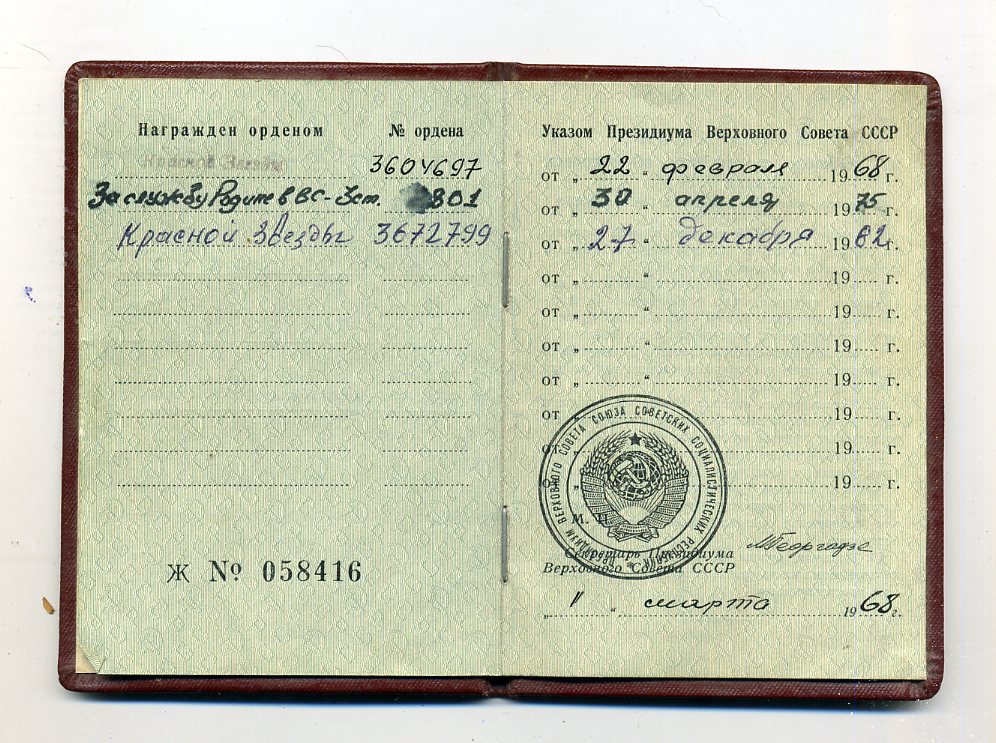 Награжден орденом № ордена
Красной Звезды 3604697
За службу Родине в ВС - 3 ст. 801
Красной Звезды 3672799
Ж № 058416
Указом Президиума Верховного Совета СССР
от „ 22 “ февраля 1968 г.
от „ 30 “ апреля 1975 г.
от „ 27 “ декабря 1982 г.
от „ “ 19 г.
от „ “ 19 г.
от „ “ 19 г.
от „ “ 19 г.
от „ “ 19 г.
от „ “ 19 г.
от „ “ 19 г.
ПРЕЗИДИУМ ВЕРХОВНОГО СОВЕТА СОЮЗА СОВЕТСКИХ СОЦИАЛИСТИЧЕСКИХ РЕСПУБЛИК
М. П.
Секретарь Президиума
Верховного Совета СССР
МГеоргадзе
„ 11 “ марта 1968 г.